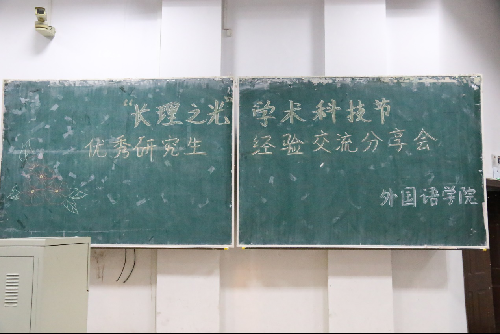 “长理之光”学术科技节
优秀研究生经验交流分享会
外国语学院